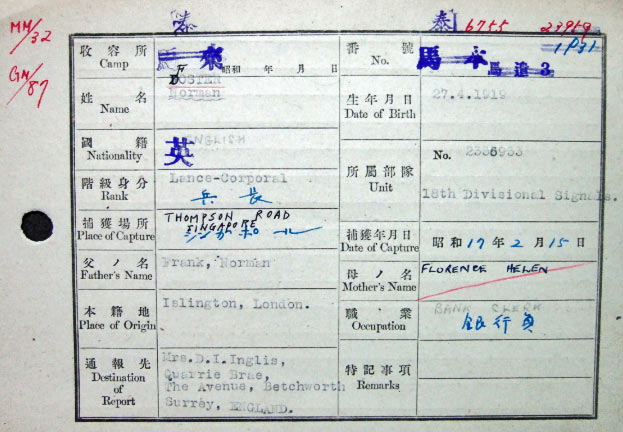 MM/32
GM/87
泰
泰 6755 23959
収容所
Camp
昭和 年 月 日
番號
No.
1931
馬來
馬進3
姓名
Name
Norman
生年月日
Date of Birth
27.4.1919
國籍
Nationality
ENGLISH
英
所屬部隊
Unit
No. 2336933
18th Divisional Signals.
階級身分
Rank
Lance-Corporal
兵長
捕獲場所
Place of Capture
THOMPSON ROAD
SINGAPORE
捕獲年月日
Date of Capture
昭和 17 年 2 月 15 日
父ノ名
Father's Name
Frank, Norman
母ノ名
Mother's Name
FLORENCE HELEN
本籍地
Place of Origin
Islington, London.
職業
Occupation
BANK CLERK
銀行員
通報先
Destination
of
Report
Mrs.D.I.Inglis,
Quarrie Brae,
The Avenue, Betchworth
Surrey, ENGLAND.
特記事項
Remarks